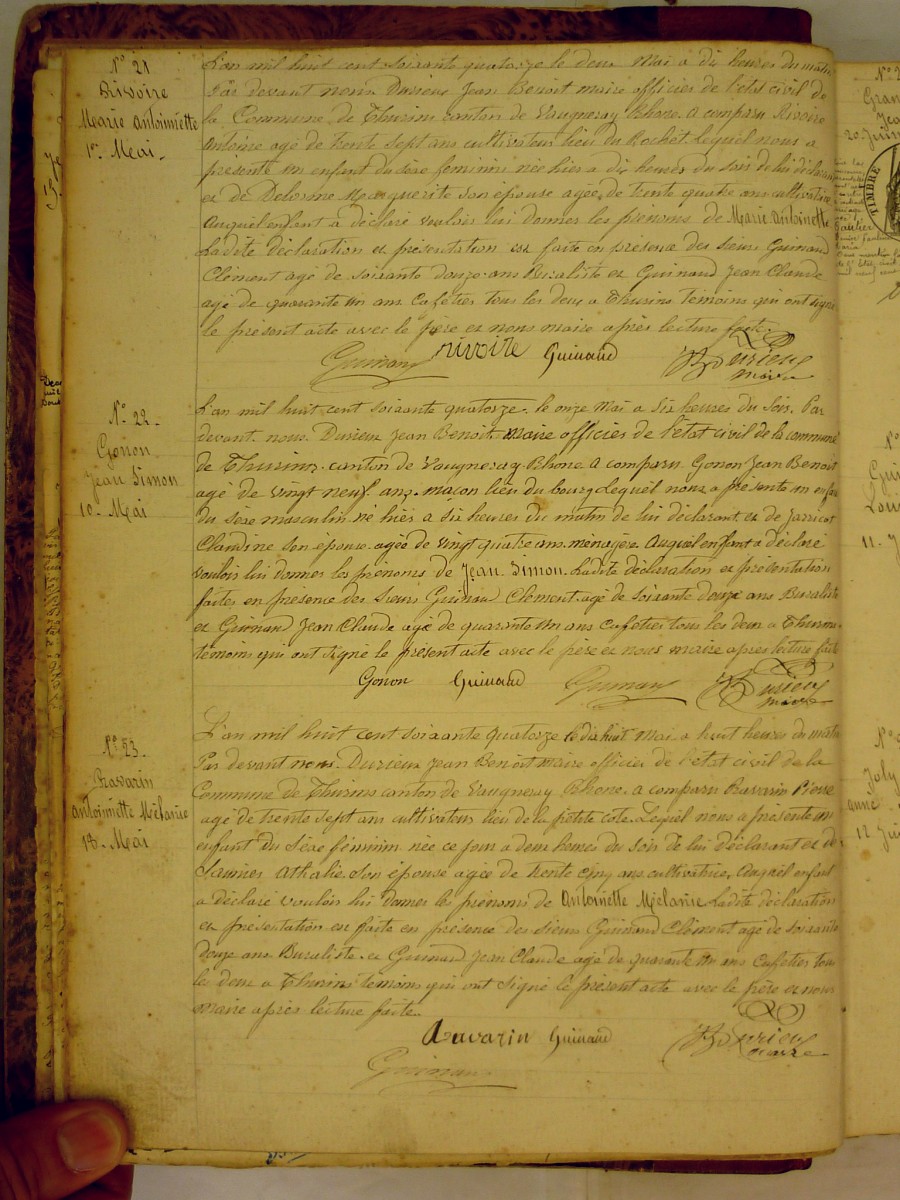 N° 21
Rivoire
Marie Antoinette
1er Mai
L'an mil huit cent soixante quatorze le deux Mai a dix heures du matin
Par devant nous Durieux Jean Benoit maire officier de l'état civil de
la Commune de Thurins canton de Vaugneray Rhone. a comparu Rivoire
Antoine agé de trente sept ans cultivateur lieu du Rochet lequel nous a
présenté un enfant du sexe feminin née hier a dix heures du soir de lui déclarant
et de Delorme Marguerite son épouse agée de trente quatre ans cultivatrice
Auquel enfant a déclaré vouloir lui donner les prénoms de Marie Antoinette
Ladite déclaration et présentation est faite en présence des sieurs Guinand
Clément agé de soixante douze ans Buraliste et Guinand Jean Claude
agé de quarante un ans Cafetier tous les deux a Thurins témoins qui ont signé
le présent acte avec le père et nous maire après lecture faite.
Guinand rivoire Guinand Durieux
maire
N° 22
Gonon
Jean Simon
10 Mai
L'an mil huit cent soixante quatorze le onze Mai a six heures du soir. Par
devant nous Durieux Jean Benoit Maire officier de l'état civil de la commune
de Thurins canton de Vaugneray Rhone a comparu Gonon Jean Benoit
agé de vingt neuf ans maçon lieu du bourg lequel nous a présenté un enfant
du sexe masculin né hier a six heures du matin de lui déclarant et de Jarricot
Claudine son épouse agée de vingt quatre ans ménagère. Auquel enfant a déclaré
vouloir lui donner les prénoms de Jean Simon. Ladite déclaration et présentation
faites en présence des sieurs Guinand Clément agé de soixante douze ans Buraliste
et Guinand Jean Claude agé de quarante un ans Cafetier tous les deux a Thurins
témoins qui ont signé le présent acte avec le père et nous maire après lecture faite
Gonon Guinand Guinand Durieux
maire
N° 23
Ravarin
Antoinette Mélanie
18 Mai
L'an mil huit cent soixante quatorze le dix huit Mai a huit heures du matin
Par devant nous Durieux Jean Benoit maire officier de l'état civil de la
Commune de Thurins canton de Vaugneray Rhone. a comparu Ravarin Pierre
agé de trente sept ans cultivateur lieu de la petite cote. Lequel nous a présenté un
enfant du sexe féminin née ce jour a deux heures du soir de lui déclarant et de
Saunier Athalie son épouse agée de trente cinq ans cultivatrice, Auquel enfant
a déclaré vouloir lui donner les prénoms de Antoinette Mélanie Ladite déclaration
et présentation est faite en présence des sieurs Guinand Clément agé de soixante
douze ans Buraliste et Guinand Jean Claude agé de quarante un ans Cafetier tous
les deux a Thurins témoins qui ont signé le présent acte avec le père et nous
maire après lecture faite.
Ravarin Guinand Durieux
maire
Guinand
TIMBRE
11
12